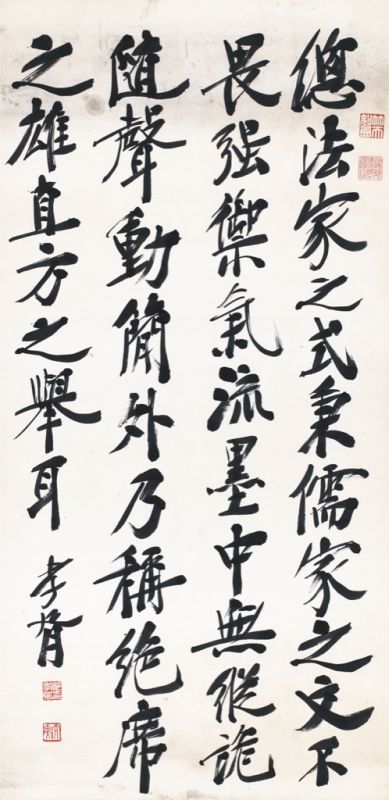 總法家之式秉儒家之文不
畏强禦氣流墨中無縱詭
隨聲動簡外乃稱絶席
之雄直方之舉耳
孝胥